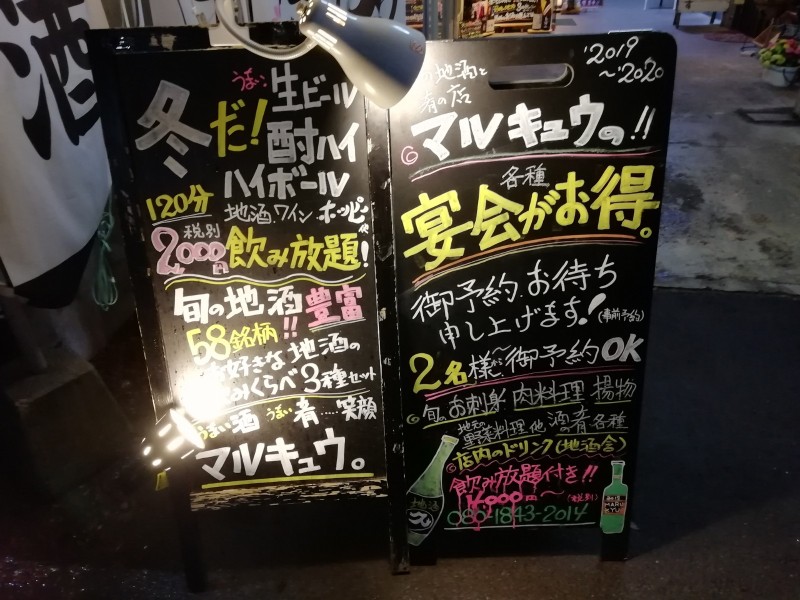 酒
冬だ!
うまい 生ビール
酎ハイ
ハイボール
120分
地酒、ワイン、ホッピー
税別
2,000円 飲み放題!
旬の地酒豊富
58銘柄!!
好きな地酒の
みくらべ3種セット
うまい酒 うまい肴.....笑顔
マルキュウ。
'2019
~'2020
地酒と
肴の店
マルキュウの!!
各種
宴会がお得。
御予約、お待ち
申し上げます! (事前予約)
2名様~御予約OK
旬、お刺身、肉料理、揚物
料理他 酒の肴各種
店内のドリンク(地酒含)
飲み放題付き!!
4,000円~ (税別)
080-1843-2014
MARU
KYU